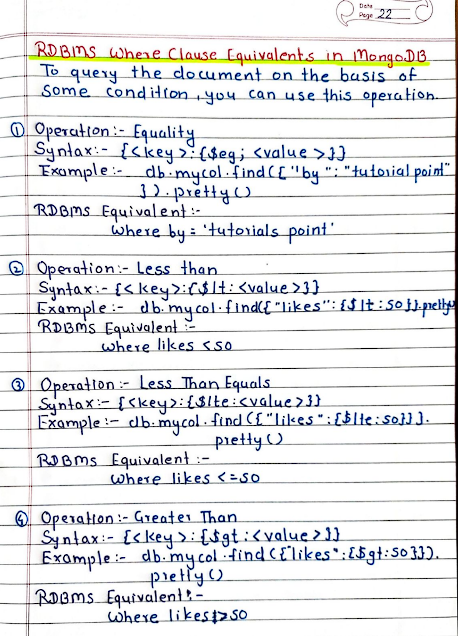 Date
Page 22
RDBMS Where Clause Equivalents in MongoDB
To query the document on the basis of
some condition, you can use this operation.
① Operation:- Equality
Syntax:- {<key>:{$eg; <value>}}
Example:- db.mycol.find({"by":"tutorial point"
}).pretty()
RDBMS Equivalent:-
Where by = 'tutorials point'
② Operation:- Less than
Syntax:- {<key>:{$lt:<value>}}
Example:- db.mycol.find({"likes":{$lt:50}}.pretty
RDBMS Equivalent:-
Where likes <50
③ Operation:- Less Than Equals
Syntax:- {<key>:{$lte:<value>}}
Example:- db.mycol.find({"likes":{$lte:50}}).
pretty()
RDBMS Equivalent:-
Where likes <=50
④ Operation:- Greater Than
Syntax:- {<key>:{$gt:<value>}}
Example:- db.mycol.find({"likes":{$gt:50}}).
pretty()
RDBMS Equivalent:-
Where likes >50